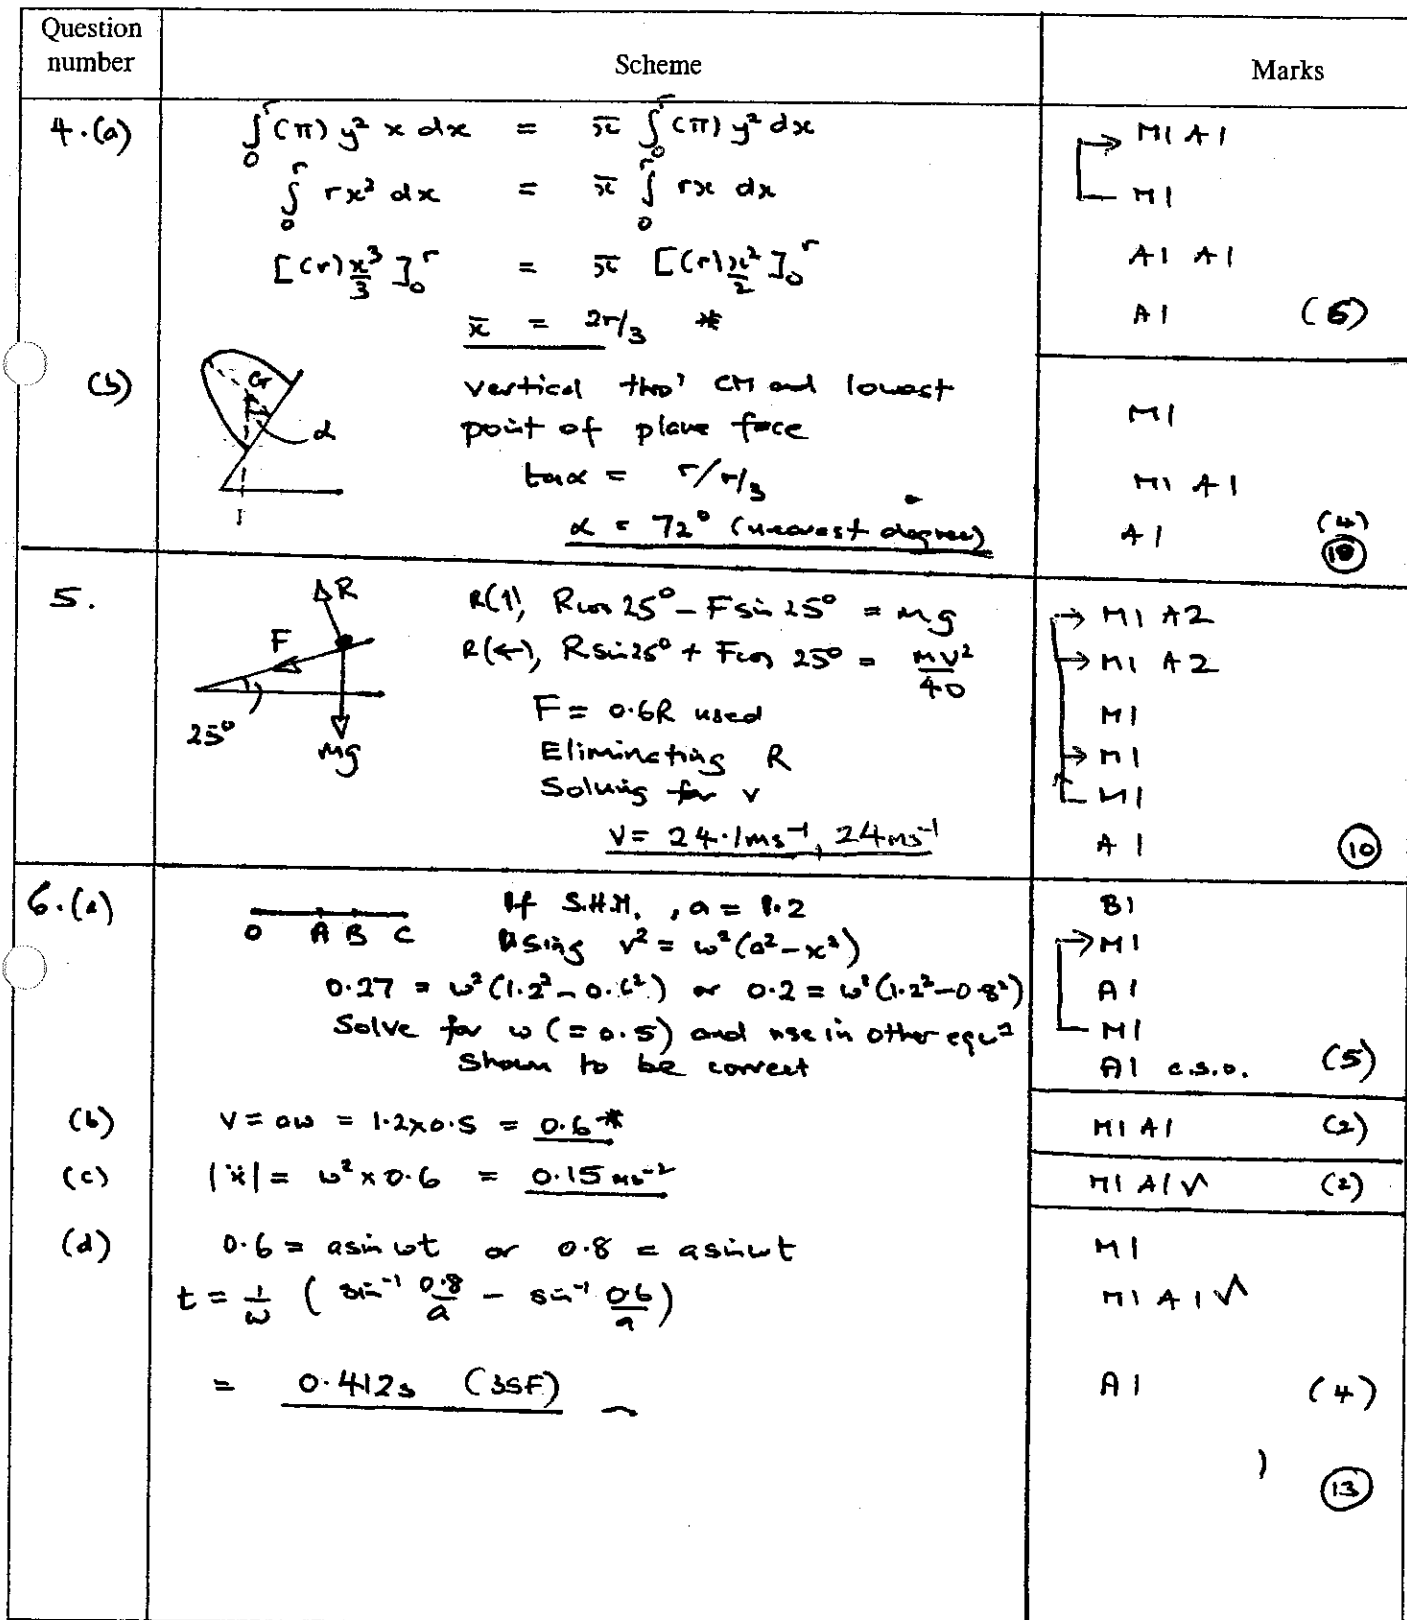 Question number | Scheme | Marks
4.(a) ∫₀ʳ (π) y² x dx = x̄ ∫₀ʳ (π) y² dx | M1 A1
∫₀ʳ rx² dx = x̄ ∫₀ʳ rx dx | M1
[(r) x³/3]₀ʳ = x̄ [(r) x²/2]₀ʳ | A1 A1
x̄ = 2r/3 * | A1 (6)
(b) G α
vertical thro' CM and lowest
point of plane face | M1
tan α = r/r/3 | M1 A1
α = 72° (nearest degree) | A1 (4)
(10)
5. R F 25° Mg
R(↑), Rcos 25° – Fsin 25° = Mg | M1 A2
R(←), Rsin25° + Fcos 25° = MV²/40 | M1 A2
F = 0.6R used | M1
Eliminating R | M1
Solving for v | M1
V = 24.1ms⁻¹, 24ms⁻¹ | A1 (10)
6.(a) O A B C If S.H.M., a = 1.2 | B1
Using v² = ω²(a² – x²) | M1
0.27 = ω²(1.2² – 0.6²) or 0.2 = ω²(1.2² – 0.8²) | A1
Solve for ω (= 0.5) and use in other equⁿ | M1
Shown to be correct | A1 c.s.o. (5)
(b) V = aω = 1.2×0.5 = 0.6 * | M1 A1 (2)
(c) |ẍ| = ω² × 0.6 = 0.15 ms⁻² | M1 A1 √ (2)
(d) 0.6 = asin ωt or 0.8 = asin ωt | M1
t = 1/ω ( sin⁻¹ 0.8/a – sin⁻¹ 0.6/a ) | M1 A1 √
= 0.412s (3SF) | A1 (4)
(13)